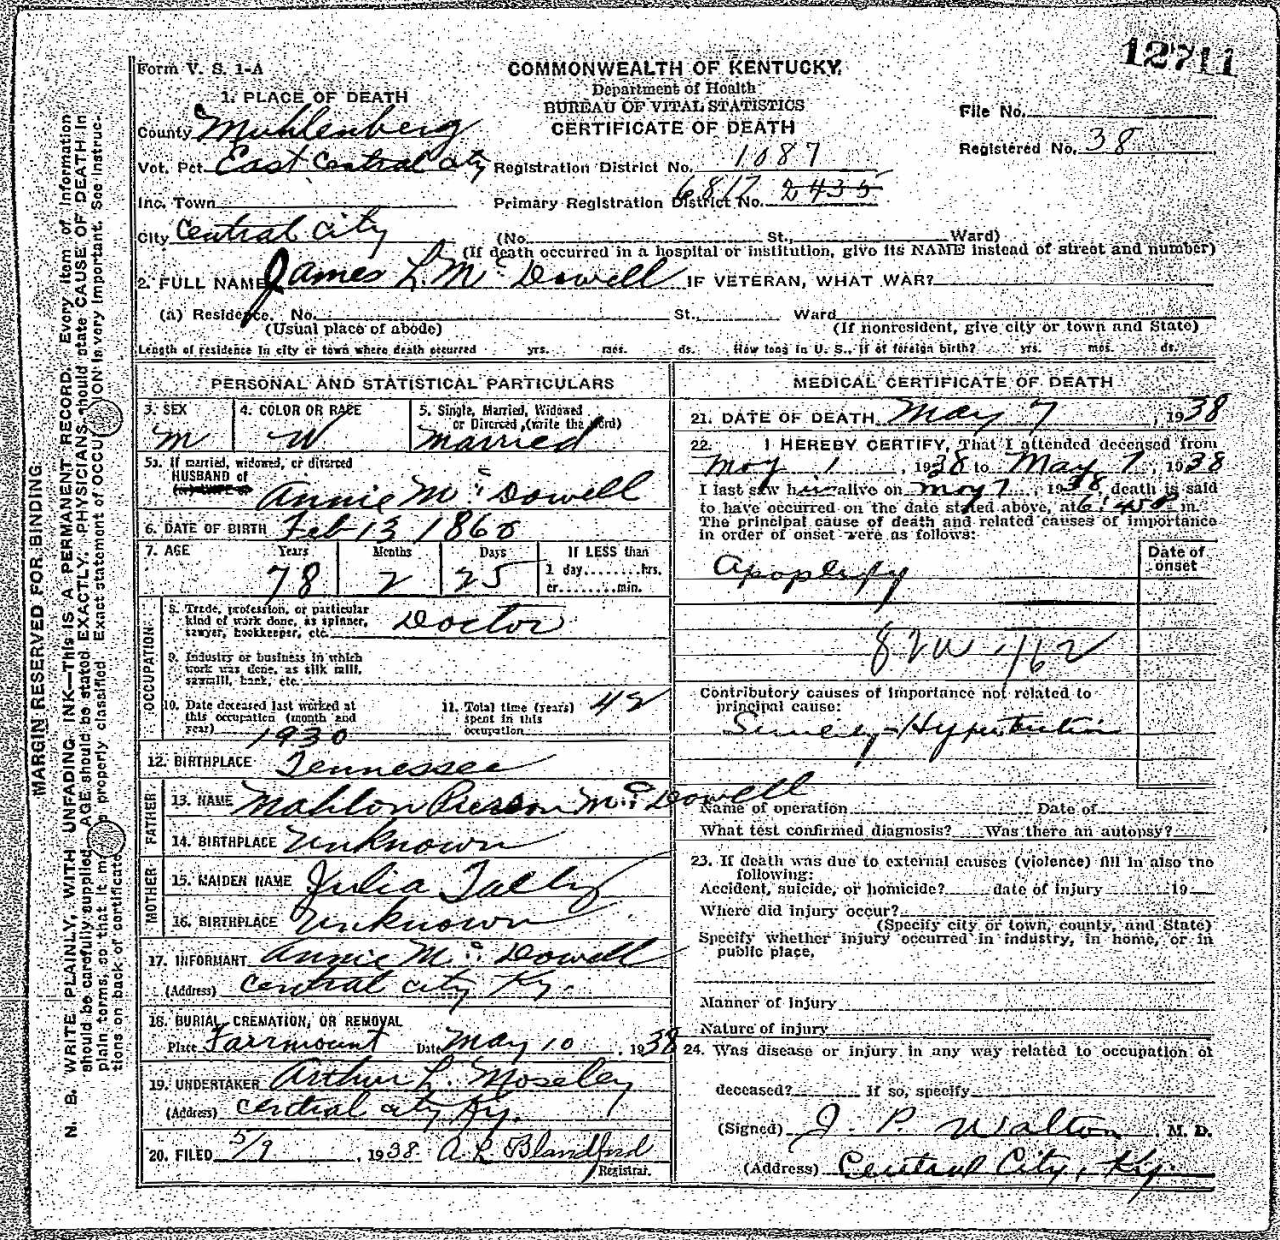 12711
Form V. S. 1-A
COMMONWEALTH OF KENTUCKY
Department of Health
BUREAU OF VITAL STATISTICS
CERTIFICATE OF DEATH
File No.
Registered No. 38
1. PLACE OF DEATH
County Muhlenberg
Vot. Pct. East Central City Registration District No. 1087
Inc. Town Primary Registration District No. 6817 2435
City Central City (No. St., Ward)
(If death occurred in a hospital or institution, give its NAME instead of street and number)
2. FULL NAME James L. Mc Dowell IF VETERAN, WHAT WAR?
(a) Residence. No. St., Ward
(Usual place of abode) (If nonresident, give city or town and State)
Length of residence in city or town where death occurred yrs. mos. ds. How long in U. S., if of foreign birth? yrs. mos. ds.
PERSONAL AND STATISTICAL PARTICULARS
3. SEX 4. COLOR OR RACE 5. Single, Married, Widowed
or Divorced, (write the word)
M W Married
5a. If married, widowed, or divorced
HUSBAND of
Annie Mc Dowell
6. DATE OF BIRTH Feb 13 1860
7. AGE Years Months Days If LESS than
1 day hrs.
78 2 25 or min.
OCCUPATION
8. Trade, profession, or particular
kind of work done, as spinner,
sawyer, bookkeeper, etc. Doctor
9. Industry or business in which
work was done, as silk mill,
sawmill, bank, etc.
10. Date deceased last worked at
this occupation (month and
year) 1930
11. Total time (years)
spent in this
occupation
12. BIRTHPLACE Tennessee
FATHER
13. NAME Mahlon Pierson Mc Dowell
14. BIRTHPLACE Unknown
MOTHER
15. MAIDEN NAME Julia Tally
16. BIRTHPLACE Unknown
17. INFORMANT Annie Mc Dowell
(Address) Central City Ky.
18. BURIAL, CREMATION, OR REMOVAL
Place Fairmount Date May 10, 1938
19. UNDERTAKER Arthur L. Moseley
(Address) Central City Ky.
20. FILED 5/9, 1938 A L Blandford
Registrar.
MEDICAL CERTIFICATE OF DEATH
21. DATE OF DEATH May 7, 1938
22. I HEREBY CERTIFY, That I attended deceased from
May 1, 1938 to May 7, 1938
I last saw him alive on May 7, 1938, death is said
to have occurred on the date stated above, at 6:45 m.
The principal cause of death and related causes of importance
in order of onset were as follows:
Date of
onset
Apoplexy
Contributory causes of importance not related to
principal cause:
Hypertention
Name of operation Date of
What test confirmed diagnosis? Was there an autopsy?
23. If death was due to external causes (violence) fill in also the
following:
Accident, suicide, or homicide? date of injury 19
Where did injury occur?
(Specify city or town, county, and State)
Specify whether injury occurred in industry, in home, or in
public place.
Manner of injury
Nature of injury
24. Was disease or injury in any way related to occupation of
deceased? If so, specify
(Signed) J. P. Walton, M. D.
(Address) Central City, Ky.
MARGIN RESERVED FOR BINDING
N. B. WRITE PLAINLY, WITH UNFADING INK—THIS IS A PERMANENT RECORD. Every item of information
should be carefully supplied. AGE should be stated EXACTLY. PHYSICIANS should state CAUSE OF DEATH in
plain terms, so that it properly classified. Exact statement of OCCUPATION is very important. See instruc-
tions on back of certificate